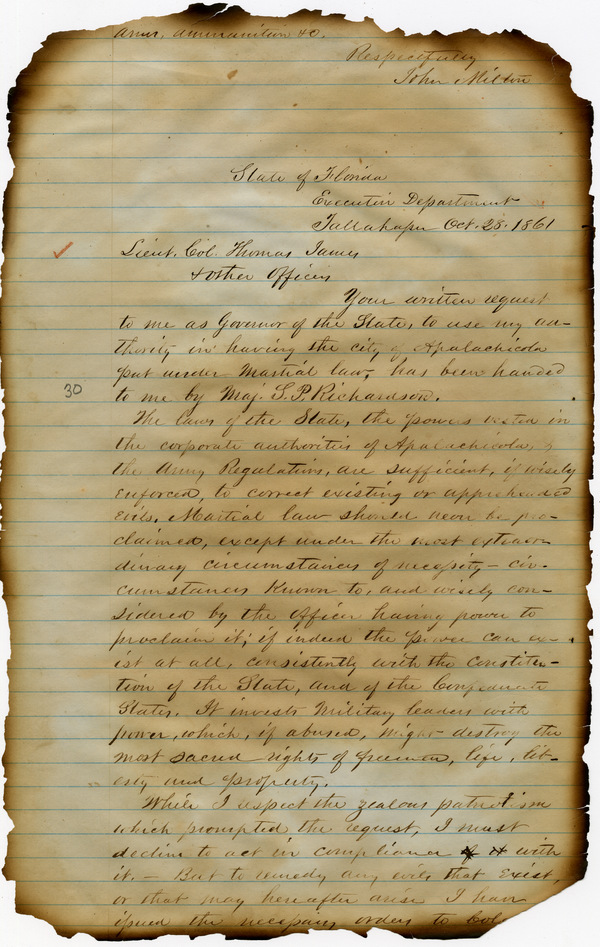 arms, ammunition &c.
Respectfully
John Milton
State of Florida
Executive Department
Tallahassee Oct. 28, 1861
Lieut. Col. Thomas James
& other Officers
Your written request
to me as Governor of the State, to use my au-
thority in having the city of Apalachicola
put under Martial law, has been handed
30
to me by Maj. S. P. Richardson.
The laws of the State, the powers vested in
the corporate authorities of Apalachicola, &
the Army Regulations, are sufficient, if wisely
enforced, to correct existing or apprehended
evils. Martial law should never be pro-
claimed, except under the most extraor-
dinary circumstances of necessity – cir-
cumstances known to, and wisely con-
sidered by the officer having power to
proclaim it; if indeed the power can ex-
ist at all, consistently with the constitu-
tion of the State, and of the Confederate
States. It invests Military leaders with
power, which, if abused, might destroy the
most sacred rights of freemen, life, lib-
erty and property.
While I respect the zealous patriotism
which prompted the request, I must
decline to act in compliance with
it. – But to remedy any evils that exist,
or that may hereafter arise I have
issued the necessary orders to Col.